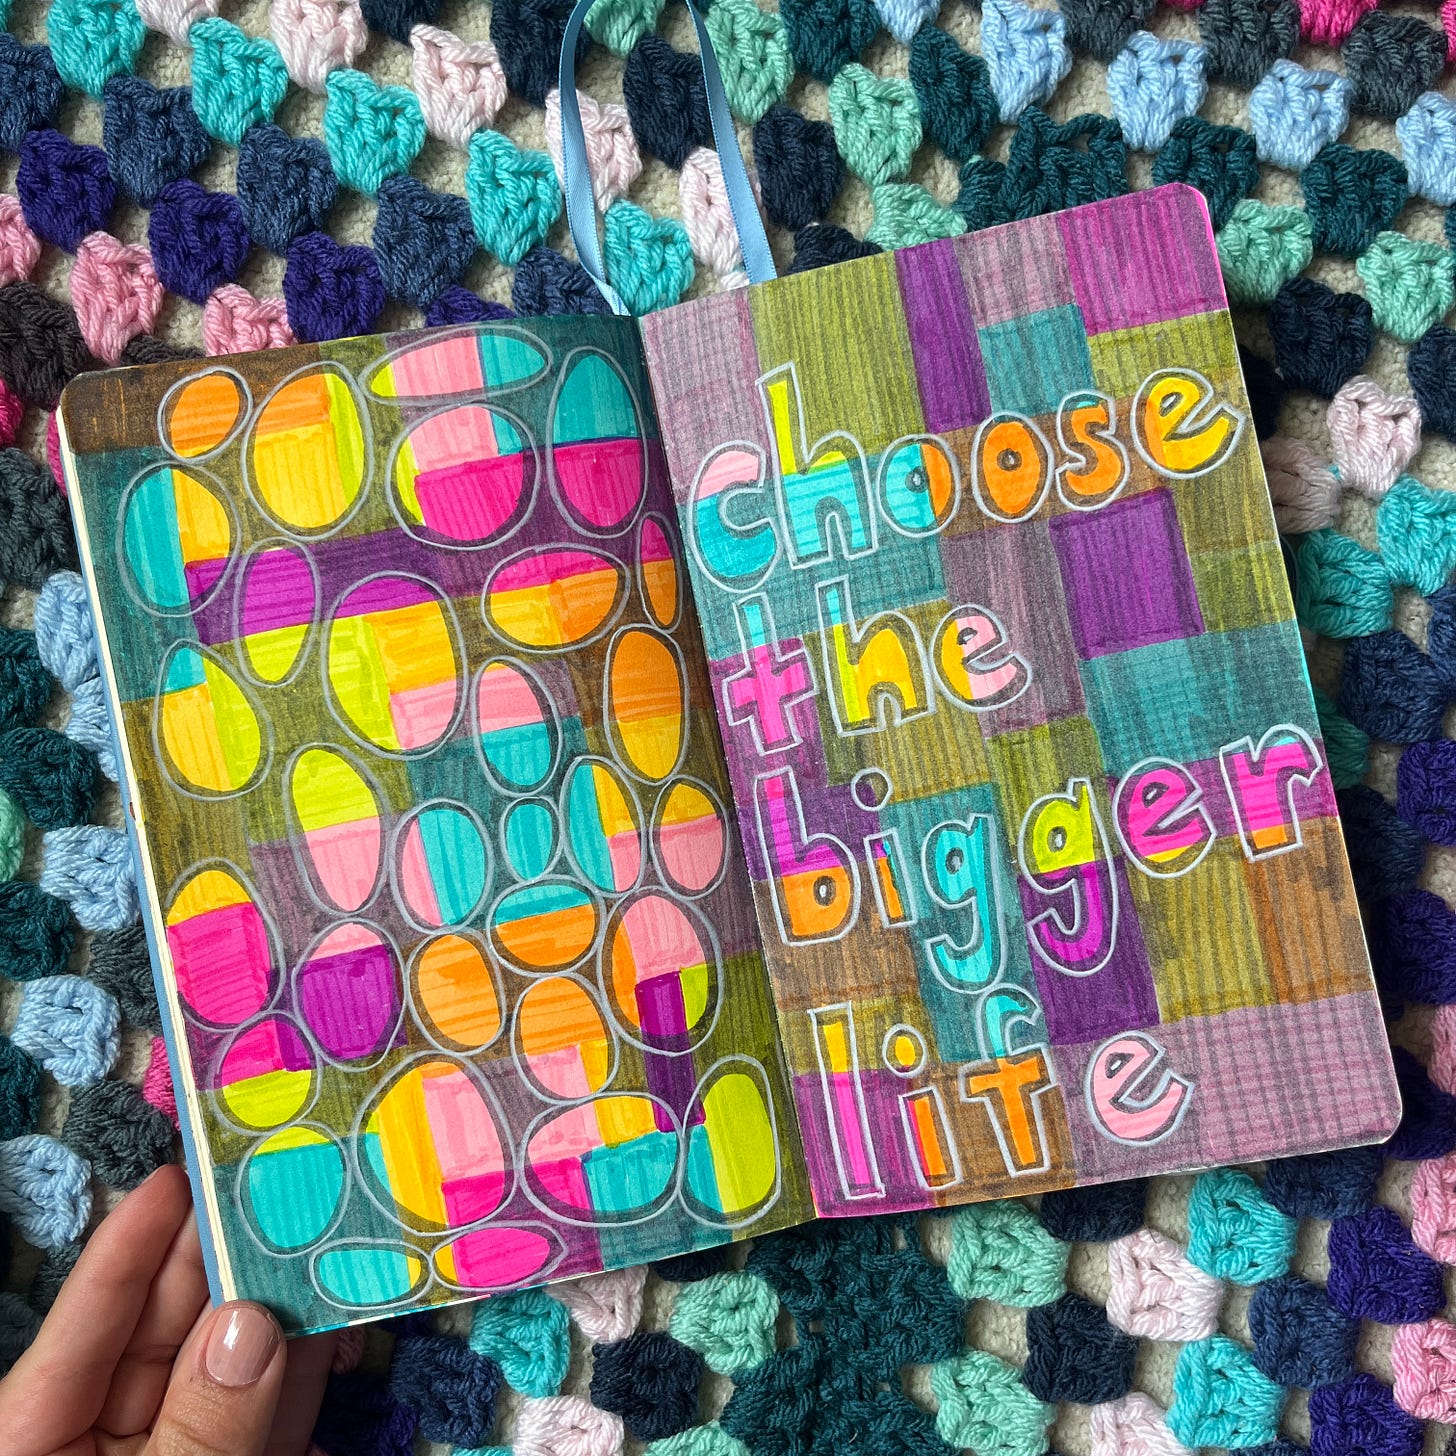 choose
the
bigger
life